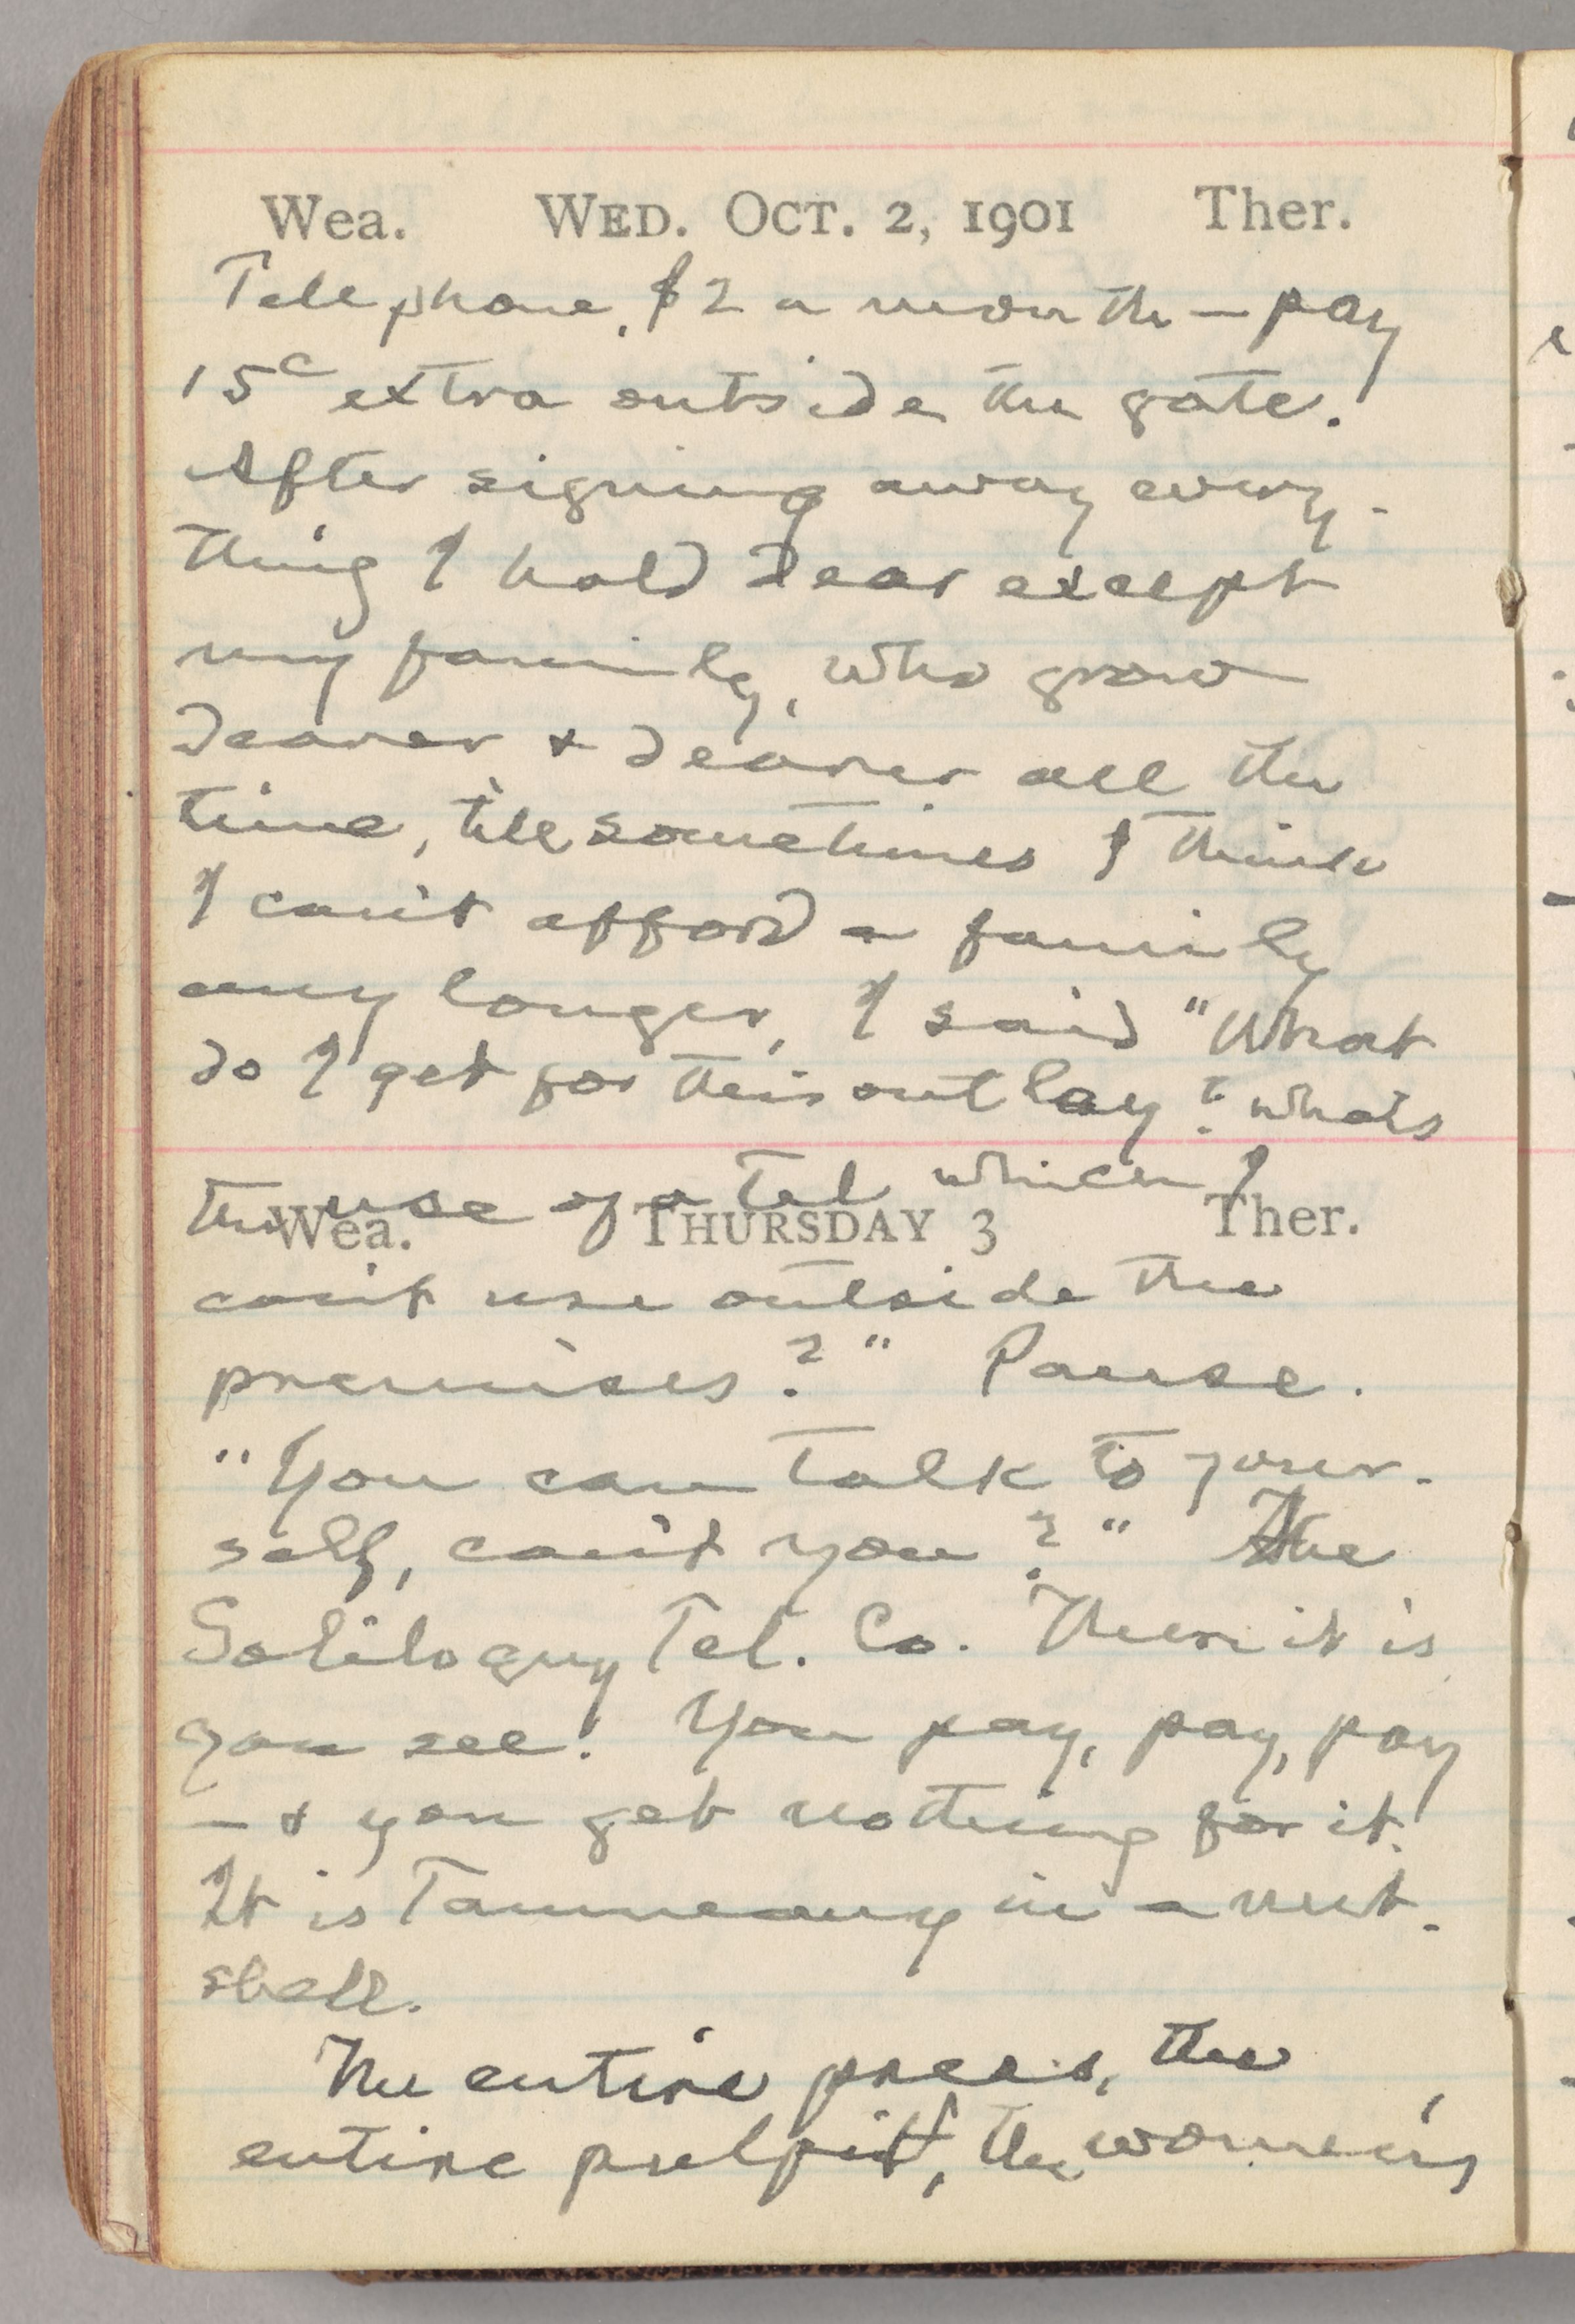 Wea. WED. OCT. 2, 1901 Ther.
Telephone. $2 a month — pay
15c extra outside the gate.
After signing away every-
thing I hold dear except
my family, who grow
dearer & dearer all the
time, till sometimes I think
I can't afford a family
any longer, I said "What
do I get for this outlay? what's
the use of a Tel which I
Wea. THURSDAY 3 Ther.
can't use outside the
premises?" Pause.
"You can talk to your-
self, can't you?" The
Soliloquy Tel. Co. There it is
you see! You pay, pay, pay
— & you get nothing for it.
It is Tammany in a nut-
shell.
The entire press, the
entire pulpit, the women,